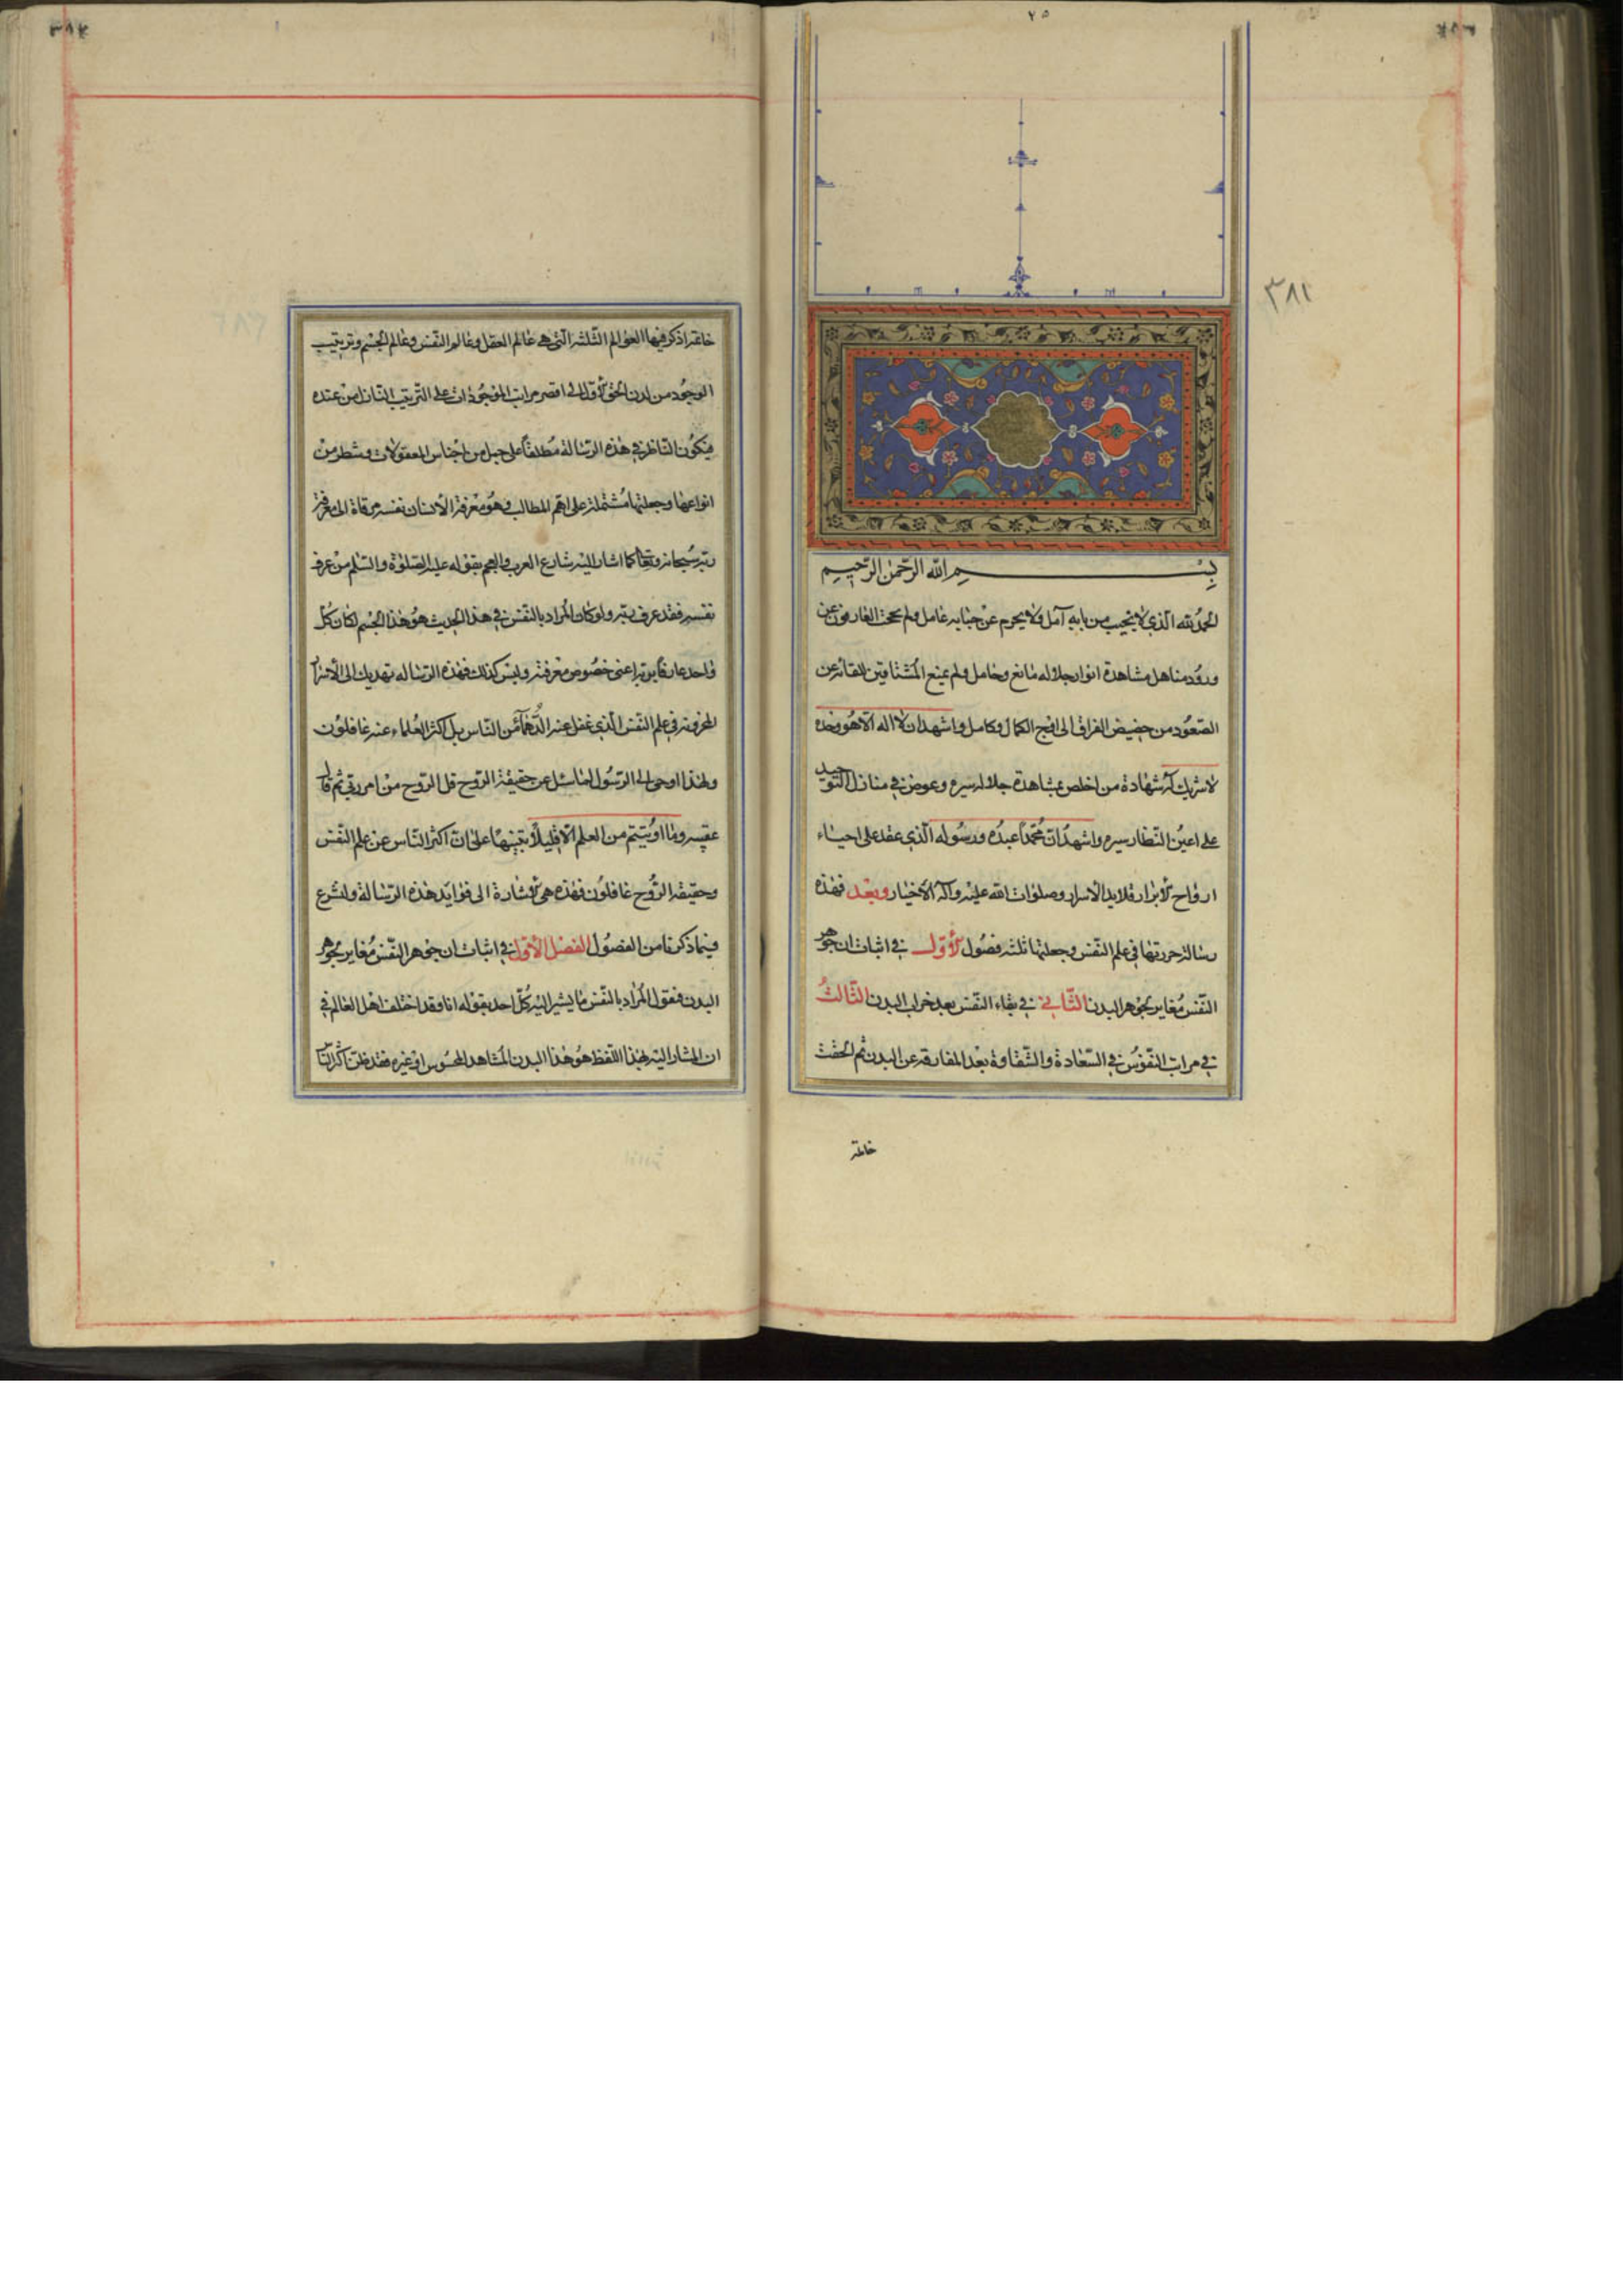 ٢٥
٣٨٢
بسم الله الرحمن الرحيم
الحمد لله الذي لا يخيب من بابه آمل ولا يحرم عن جنابه عامل ولم يحجب العارفون عن
ورود مناهل مشاهدة انوار جلاله مانع وحامل ولم يمنع المشتاقين للقائه عن
الصعود من حضيض الفراق الى اوج الكمال وكامل واشهد ان لا اله الا هو وحده
لا شريك له شهادة من اخلص بمشاهدة جلاله سيره وعوض في منازل التوحيد
على اعين النظار سيره واشهد ان محمدا عبده ورسوله الذي عقد على احياء
ارواح الابرار قلايد الاسرار وصلوات الله عليه وآله الاخيار وبعد فهذه
رسالة حررتها في علم النفس وجعلتها ثلثه فصول الاول في اثبات ان جوهر
النفس مغاير لجوهر البدن الثاني في بقاء النفس بعد خراب البدن الثالث
في مراتب النفوس في السعادة والشقاوة بعد المفارقه عن البدن ثم الحقت
خاتمة
خاتمة اذكر فيها العوالم الثلثه التي هي عالم العقل وعالم النفس وعالم الجسم وترتيب
الوجود من لدن الحق الاول الى اقصى مراتب الموجودات على الترتيب النازل من عنده
فيكون الناظر في هذه الرسالة مطلعا على جمل من اجناس المعقولات وشطر من
انواعها وجعلتها مشتملة على اهم المطالب وهو معرفة الانسان نفسه مرقاة الى معرفة
ربه سبحانه وتعالى كما اشار اليه شارع العرب والعجم بقوله عليه الصلوة والسلم من عرف
نفسه فقد عرف ربه ولو كان المراد بالنفس في هذا الحديث هو هذا الجسم لكان كل
واحد عارفا بربه اعنى خصوص معرفته وليس كذلك فهذه الرساله تهديك الى الاسرار
المخزونة في علم النفس الذي غفل عنه الدهماء من الناس بل اكثر العلماء عنه غافلون
ولهذا اوحى الى الرسول لما سئل عن حقيقة الروح قل الروح من امر ربي ثم قال
عقيبه وما اوتيتم من العلم الا قليلا تنبيها على ان اكثر الناس عن علم النفس
وحقيقة الروح غافلون فهذه هي الاشارة الى فوايد هذه الرسالة ولنشرع
فيما ذكرنا من الفصول الفصل الاول في اثبات ان جوهر النفس مغاير لجوهر
البدن فنقول المراد بالنفس ما يشير اليه كل احد بقوله انا وقد اختلف اهل العالم في
ان المشار اليه بهذا اللفظ هو هذا البدن المشاهد المحسوس او غيره فقد ظن اكثر الناس